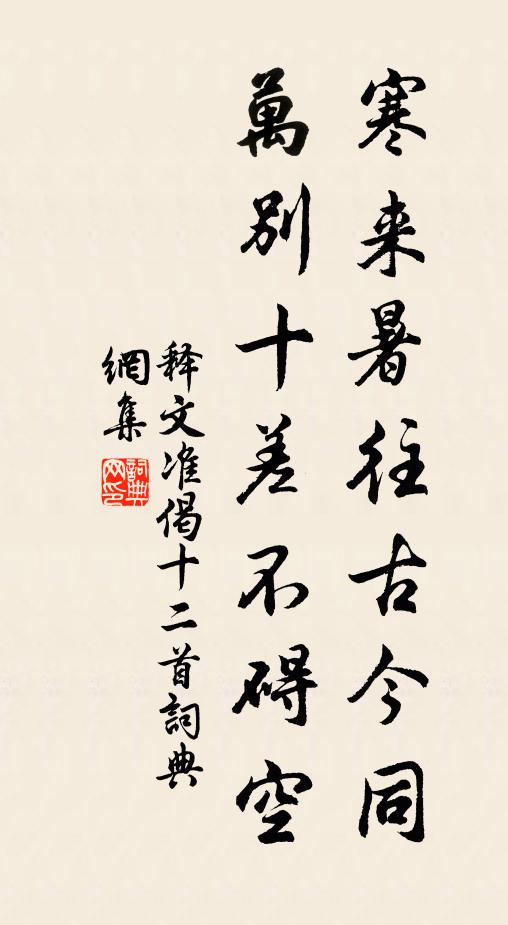 寒来暑往古今同
萬別十差不碍空
释文准偈十二首詞典
網集
詞典
网印